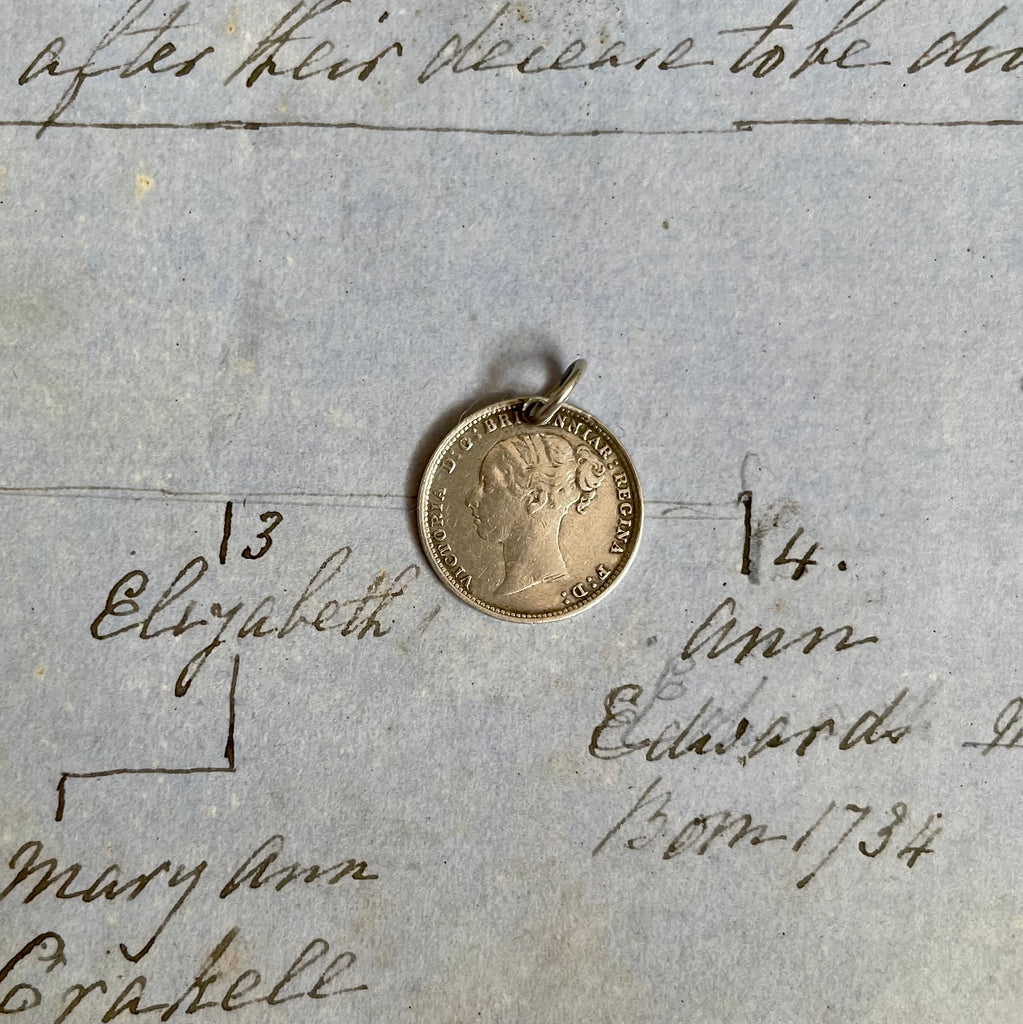 after their decease to be
VICTORIA D: G: BRITANNIAR: REGINA F: D:
3
4.
Elizabeth
Ann
Edwards
Born 1734
Mary Ann
Crakell